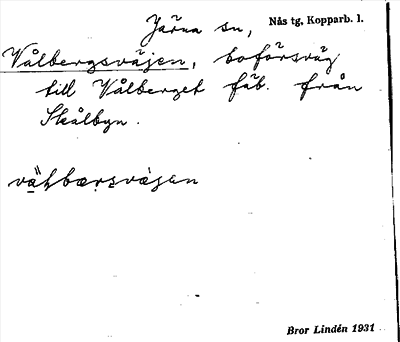 Järna sn, Nås tg, Kopparb. l.
Vålbergsväjen, boförsväg
till Vålberget fäb. från
Skålbyn.
Bror Lindén 1931